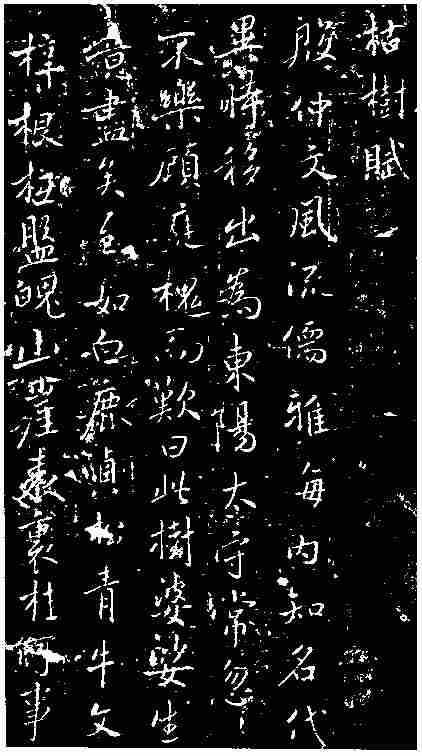 枯樹賦
殷仲文風流儒雅海内知名代
異時移出為東陽大守常忽〻
不樂顧庭槐而歎曰此樹婆娑生
意盡矣至如白鹿貞松青牛文
梓根柢盤魄山崖表裏桂何事